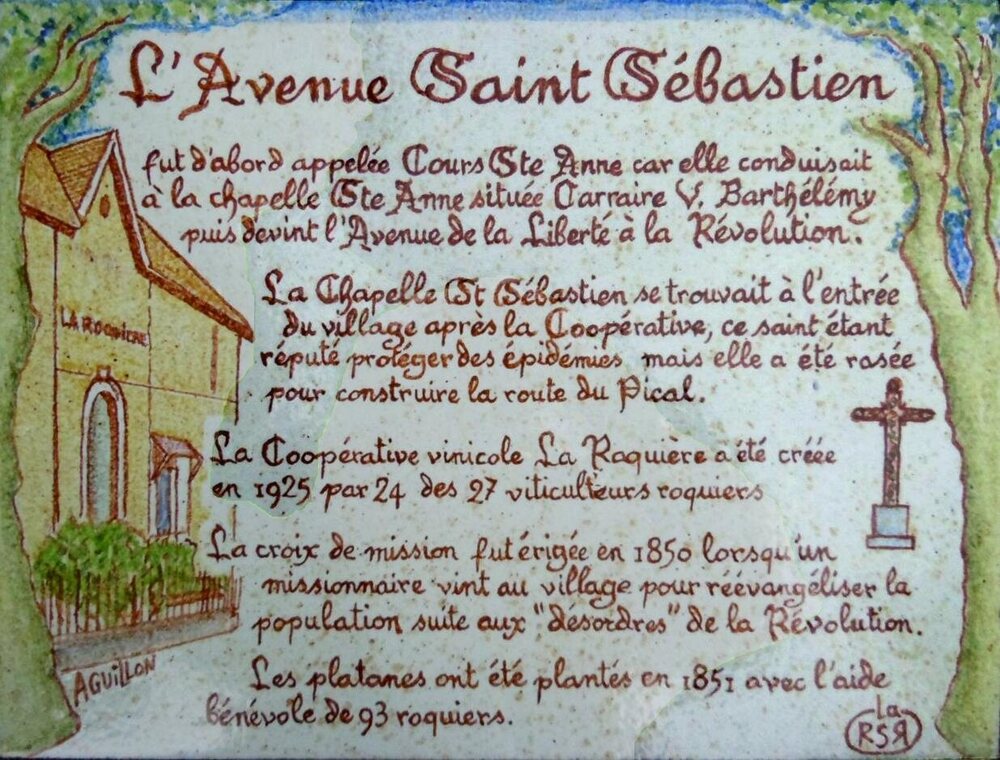 L'Avenue Saint Sébastien
fut d'abord appelée Cours Ste Anne car elle conduisait
à la chapelle Ste Anne située Carraire V. Barthélémy
puis devint l'Avenue de la Liberté à la Révolution.
La Chapelle St Sébastien se trouvait à l'entrée
du village après la Coopérative, ce saint étant
réputé protéger des épidémies mais elle a été rasée
pour construire la route du Pical.
LA ROQUIÈRE
La Coopérative vinicole La Roquière a été créée
en 1925 par 24 des 27 viticulteurs roquiers
La croix de mission fut érigée en 1850 lorsqu'un
missionnaire vint au village pour réévangéliser la
population suite aux "désordres" de la Révolution.
Les platanes ont été plantés en 1851 avec l'aide
bénévole de 93 roquiers.
AGUILLON
La
RSR